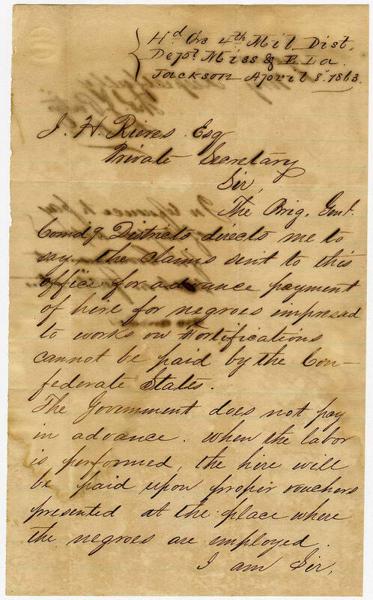 Hd Qrs 4th Mil. Dist.
Dept Miss & E La
Jackson April 8. 1863.
J. H. Rieves. Esq
Private Secretary
Sir,
The Brig. Genl.
Comdg Districts directs me to
say the Claims sent to this
office for advance payment
of hire for negroes impressed
to works on Fortifications
cannot be paid by the Con-
federate States.
The Government does not pay
in advance. When the labor
is performed, the hire will
be paid upon proper vouchers
presented at the place where
the negroes are employed.
I am Sir,